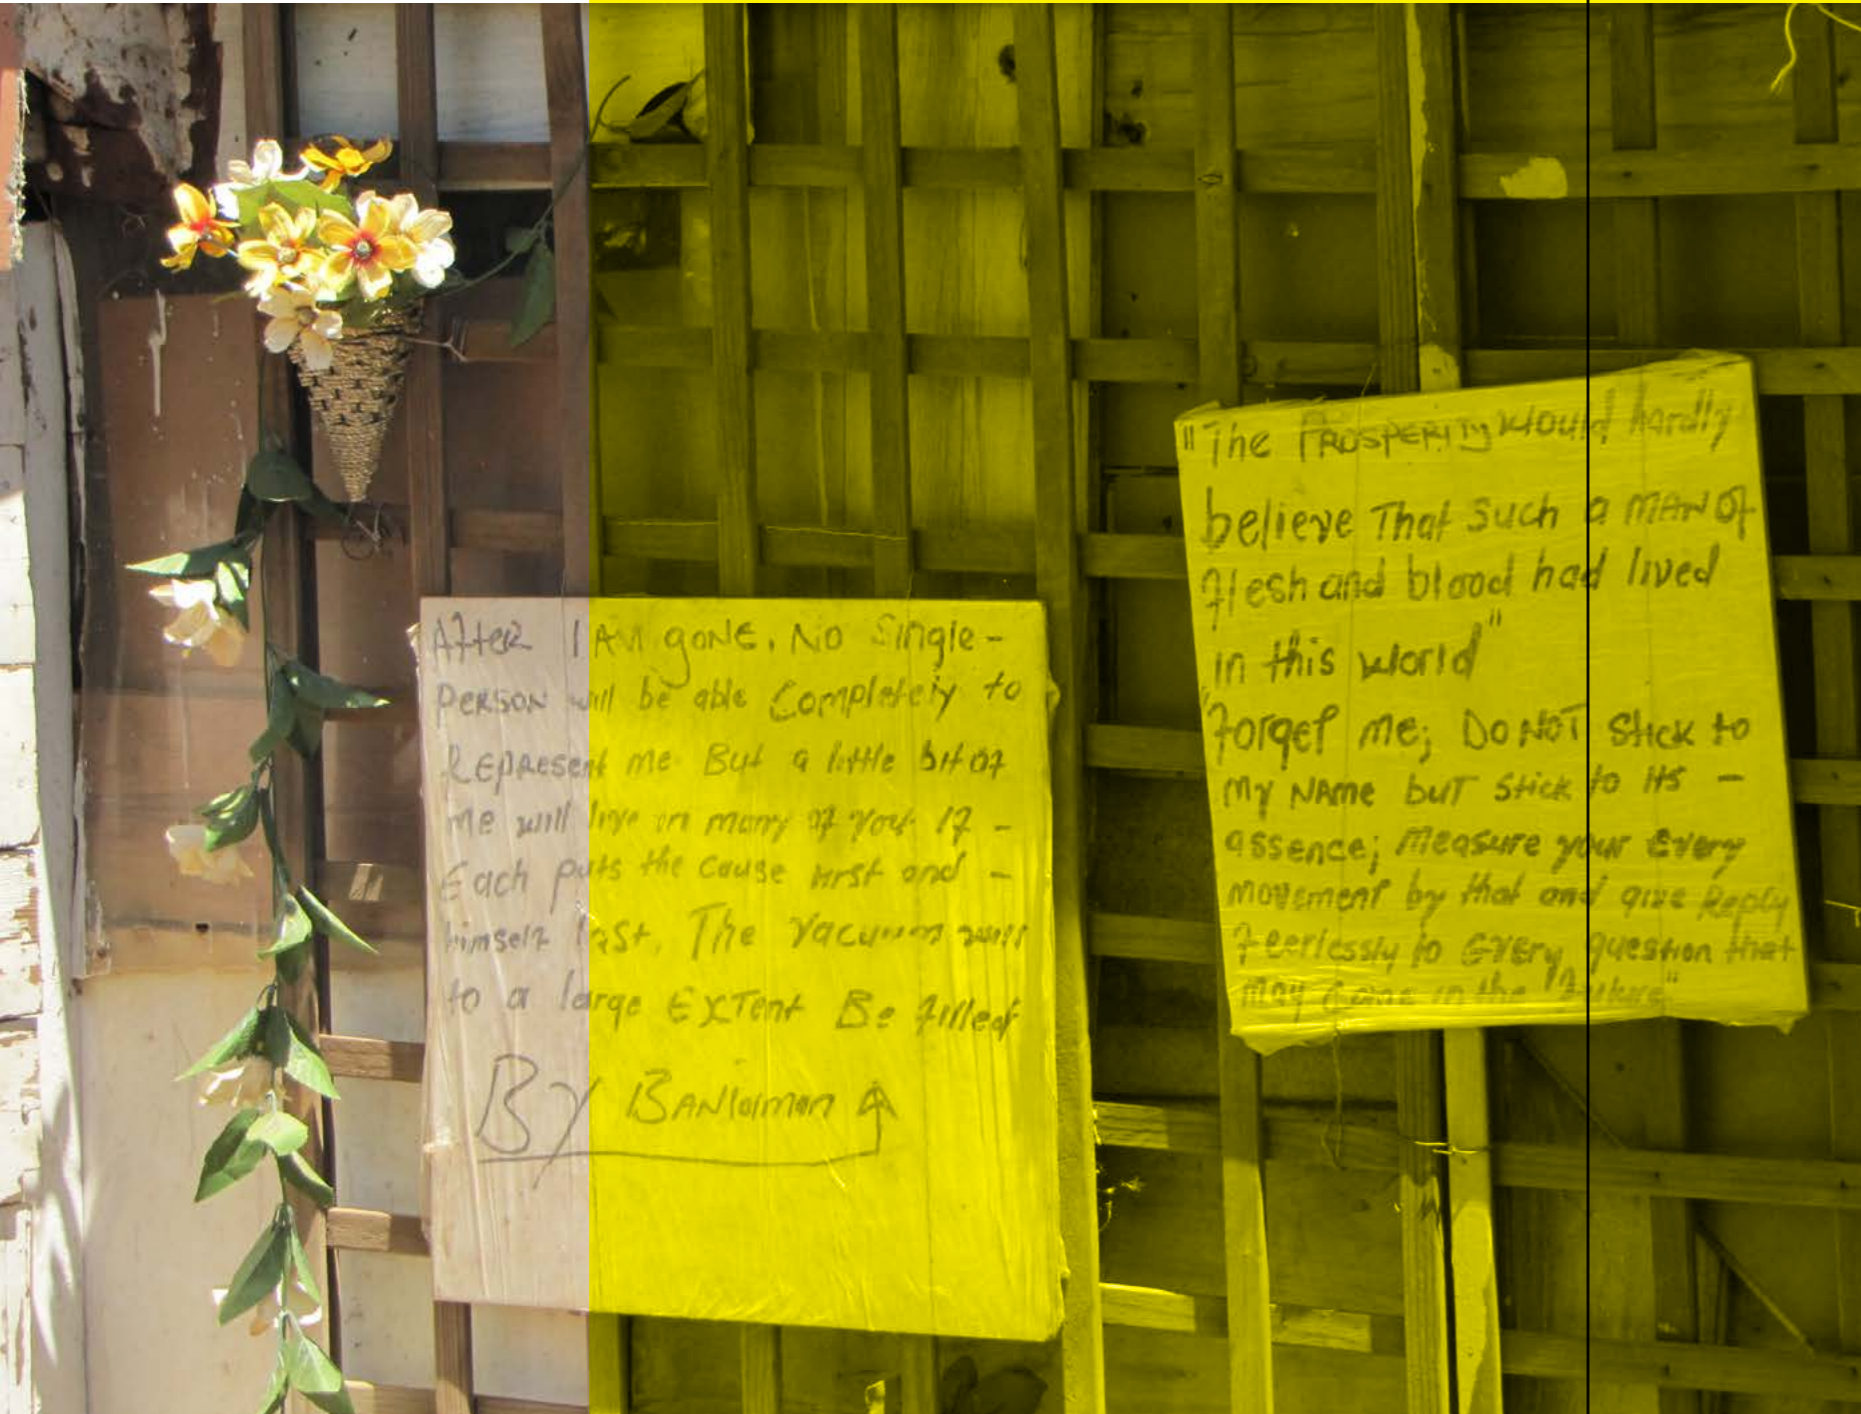 After I AM gONE. No Single -
PERSON will be able Completely to
REpRESENt me But a little bit of
me will live in many of you. If -
Each puts the cause first and -
himself last. The Vacuum will
to a large EXTent Be filled
By BANlaman
"The PROSPERITy would hardly
believe That Such a MAN Of
flesh and blood had lived
in this world"
"forget me; DO NOT Stick to
My NAme buT Stick to its -
assence; Measure your Every
movement by that and give Reply
feerlessly to EVERy question that
May Come in the "future"